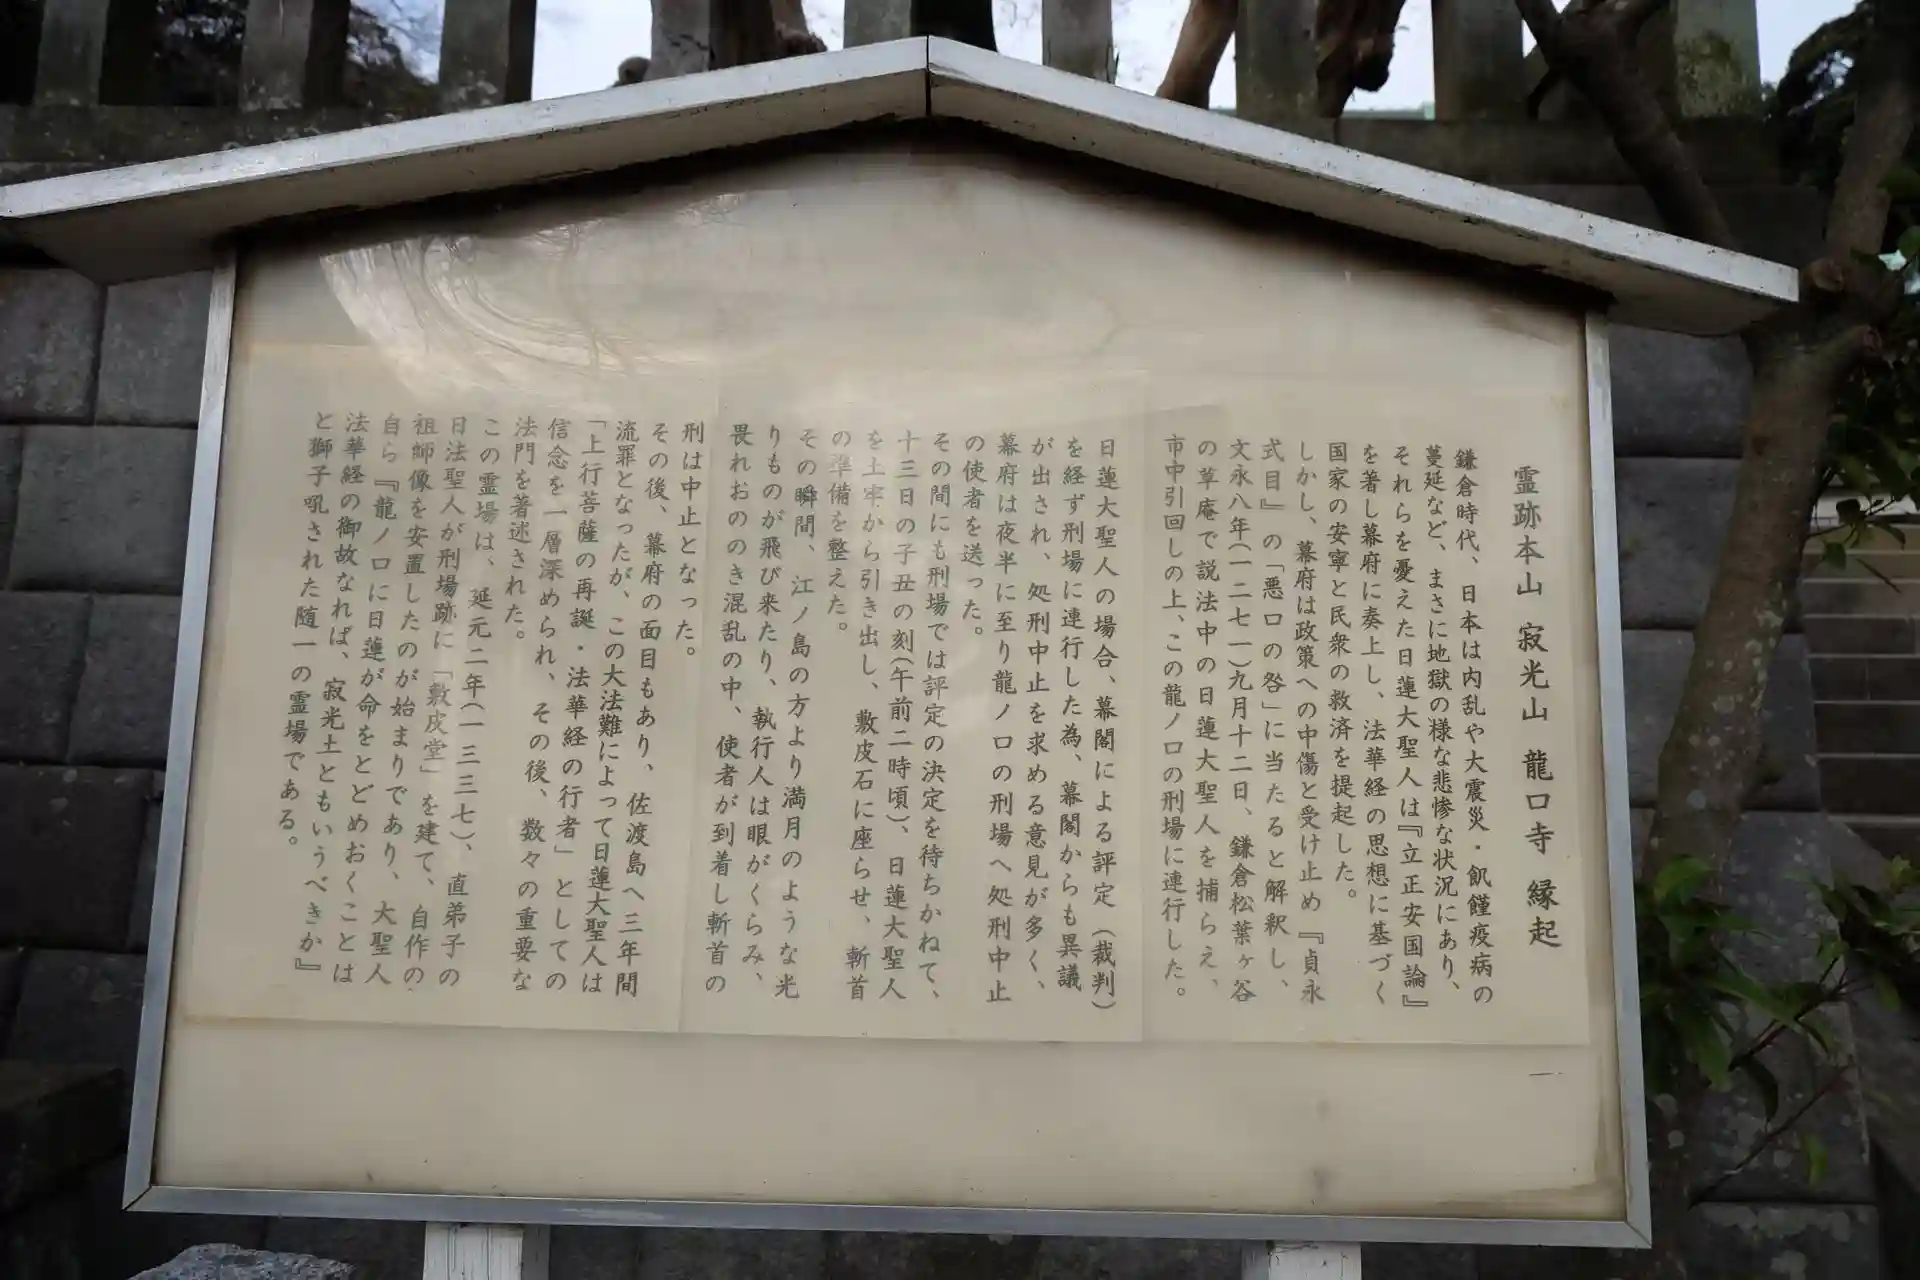 霊跡本山 寂光山 龍口寺 縁起
鎌倉時代、日本は内乱や大震災・飢饉疫病の
蔓延など、まさに地獄の様な悲惨な状況にあり、
それらを憂えた日蓮大聖人は『立正安国論』
を著し幕府に奏上し、法華経の思想に基づく
国家の安寧と民衆の救済を提起した。
しかし、幕府は政策への中傷と受け止め『貞永
式目』の「悪口の咎」に当たると解釈し、
文永八年(一二七一)九月十二日、鎌倉松葉ヶ谷
の草庵で説法中の日蓮大聖人を捕らえ、
市中引回しの上、この龍ノ口の刑場に連行した。
日蓮大聖人の場合、幕閣による評定（裁判）
を経ず刑場に連行した為、幕閣からも異議
が出され、処刑中止を求める意見が多く、
幕府は夜半に至り龍ノ口の刑場へ処刑中止
の使者を送った。
その間にも刑場では評定の決定を待ちかねて、
十三日の子丑の刻(午前二時頃)、日蓮大聖人
を土牢から引き出し、敷皮石に座らせ、斬首
の準備を整えた。
その瞬間、江ノ島の方より満月のような光
りものが飛び来たり、執行人は眼がくらみ、
畏れおののき混乱の中、使者が到着し斬首の
刑は中止となった。
その後、幕府の面目もあり、佐渡島へ三年間
流罪となったが、この大法難によって日蓮大聖人は
「上行菩薩の再誕・法華経の行者」としての
信念を一層深められ、その後、数々の重要な
法門を著述された。
この霊場は、延元二年(一三三七)、直弟子の
日法聖人が刑場跡に「敷皮堂」を建て、自作の
祖師像を安置したのが始まりであり、大聖人
自ら『龍ノ口に日蓮が命をとどめおくことは
法華経の御故なれば、寂光土ともいうべきか』
と獅子吼された随一の霊場である。